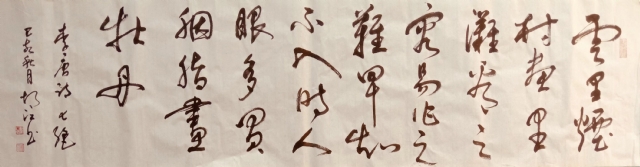 雲里煙
村雨里
灘看之
容易作之
難早知
不入時人
眼多買
胭脂畫
牡丹
李唐詩七絕
己亥秋月 書